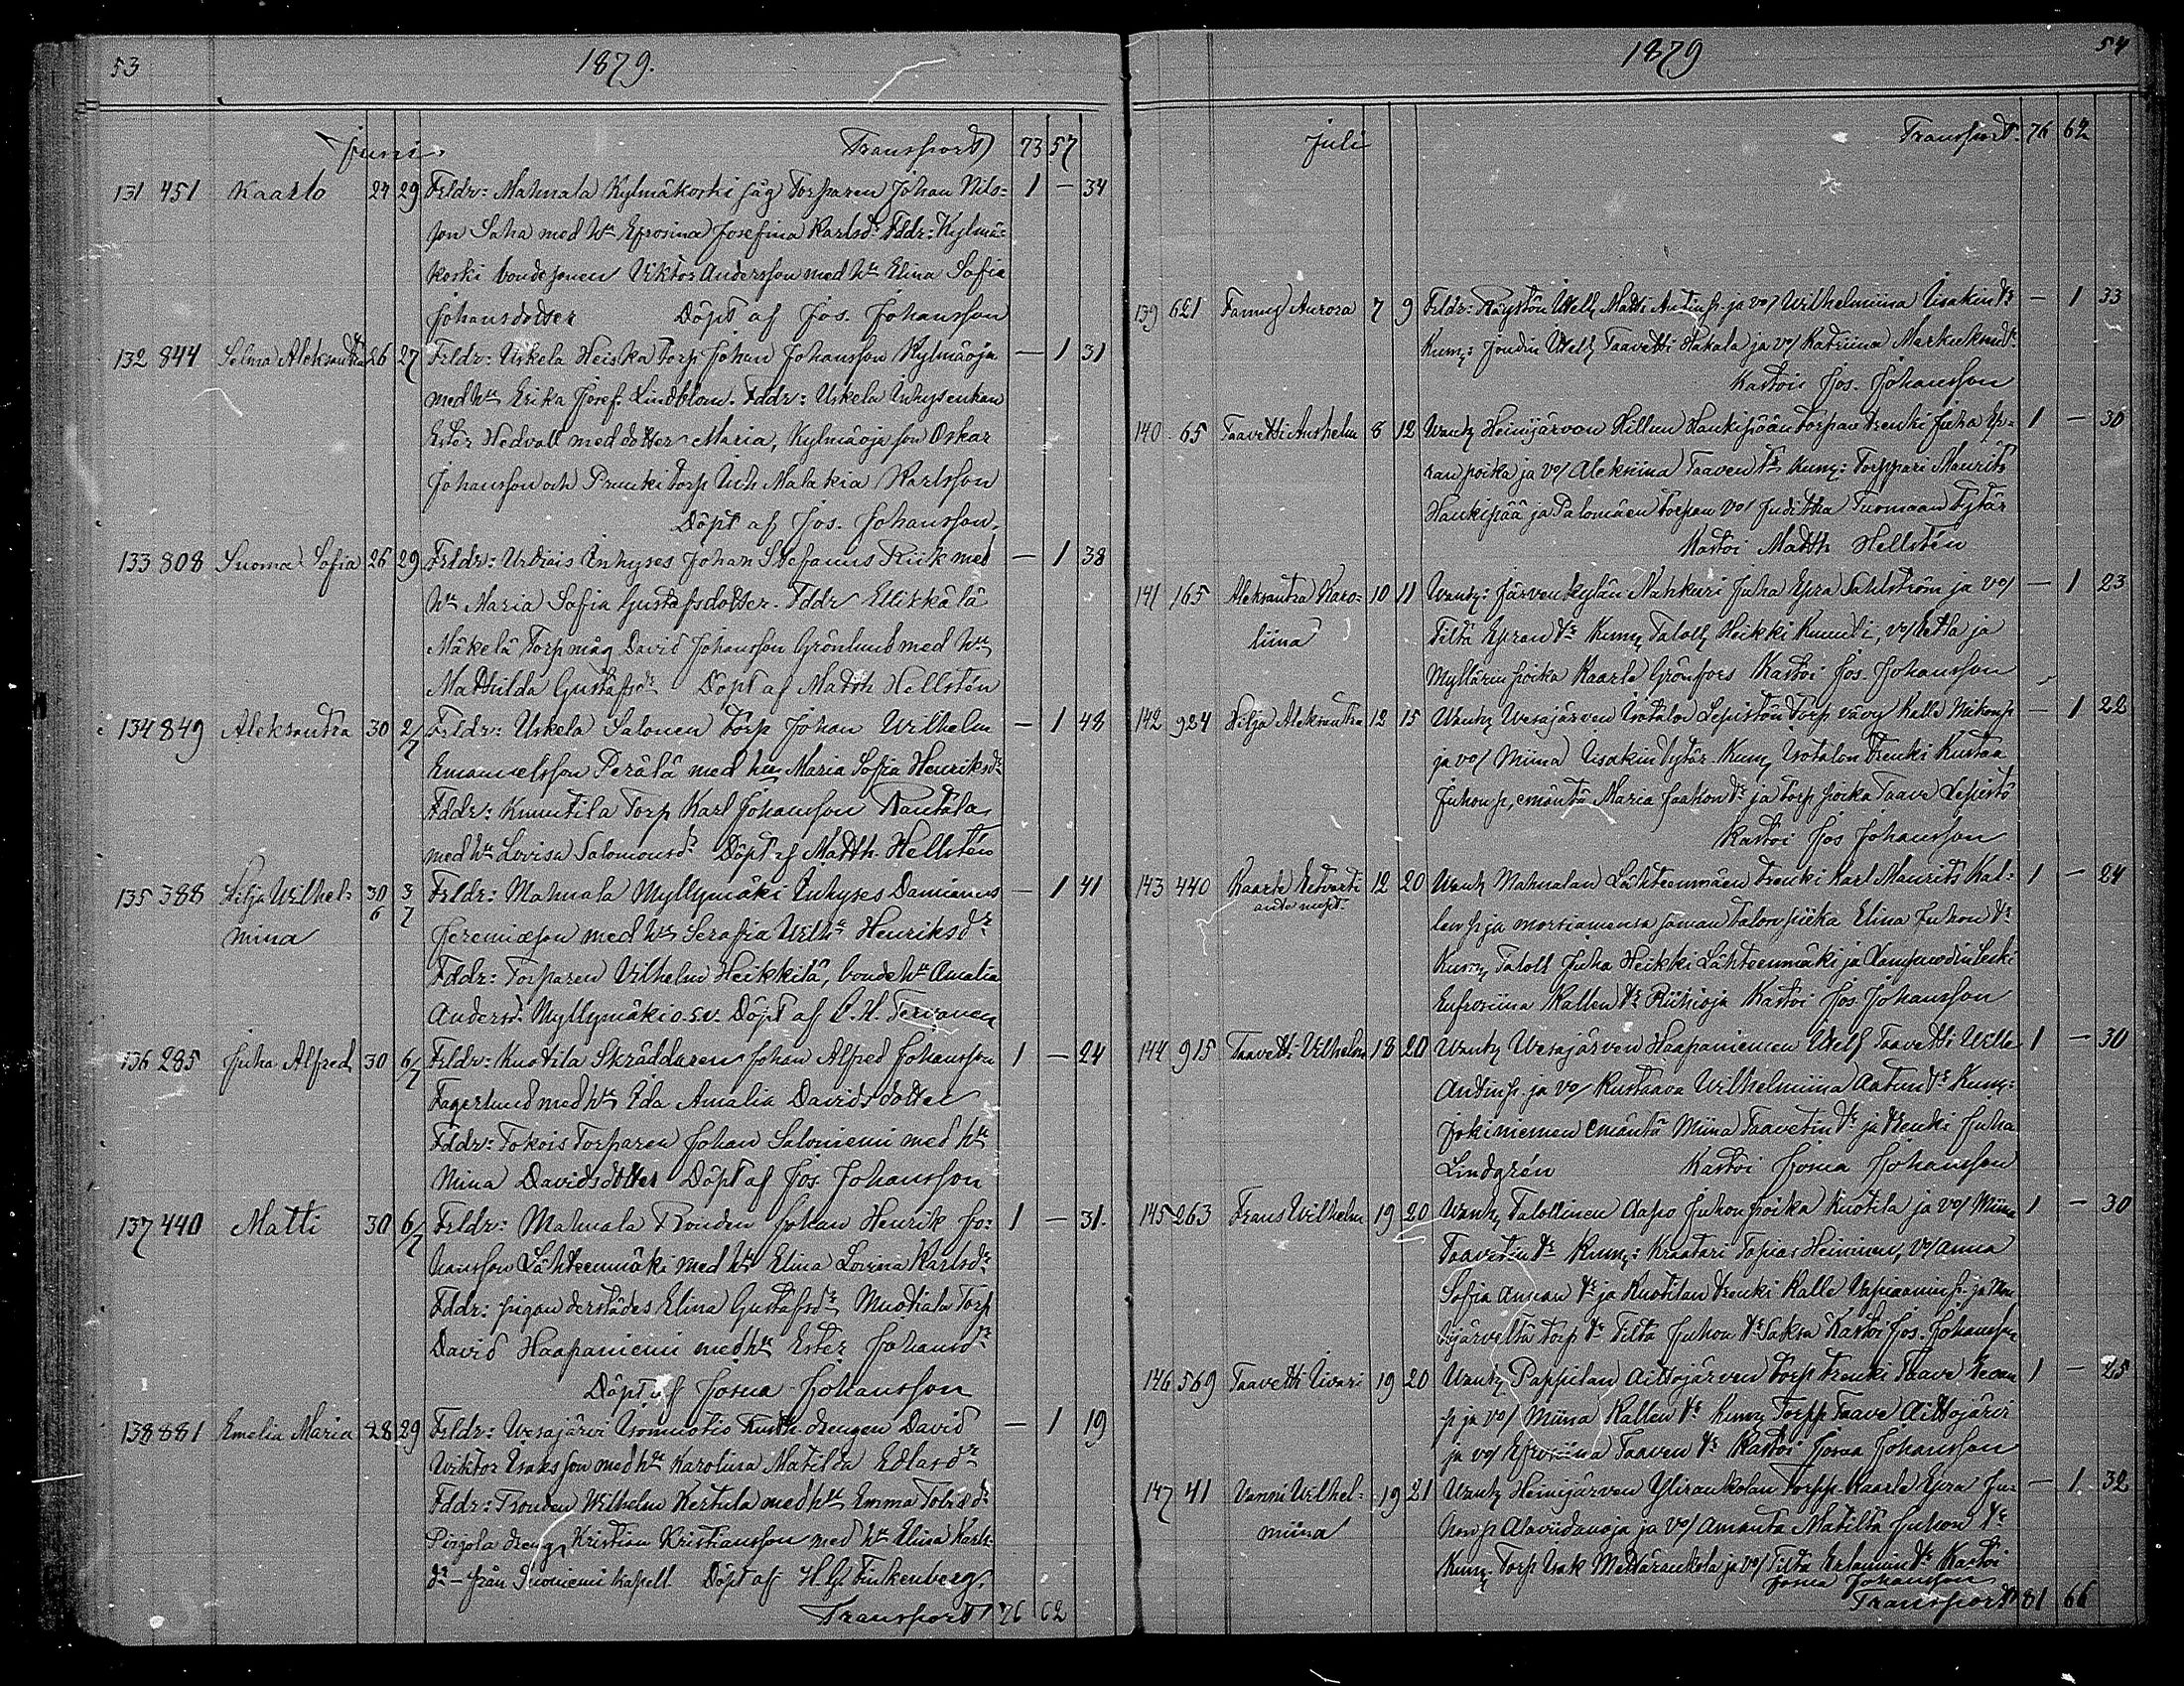 53
1879.
Juni Transport 73 57
131 451 Kaarlo 27 29 Frldr: Mahnala Kylmäkoski Torparen Johan Nils- 1 — 34
son Saha med h:u Efrosina Josefina Karlsd:r Fddr: Kylmä-
koski bondesonen Viktor Andersson med h:u Elina Sofia
Johansdotter Döpt af Jos. Johansson
132 844 Selma Aleksandra 26 27 Frldr: Urkela Heiska Torp Johan Johansson Kylmäoja — 1 31
med h:u Erika Josef. Lindblom. Fddr: Urkela Inhysenkan
Ester Hedvall med dotter Maria, Kylmäoja son Oskar
Johansson och Prunki torp Inh Malakia Karlsson
Döpt af Jos. Johansson.
133 808 Suoma Sofia 26 29 Frldr: Urdiais Inhyses Johan Stefanus Riik med — 1 38
h:u Maria Sofia Gustafsdotter. Fddr Ellikkälä
Mäkelä Torp måg David Johansson Grönlund med h:u
Mathilda Gustafsd:r Döpt af Matth Hellstén
134 849 Aleksantra 30 2/7 Frldr: Urkela Salonen Torp Johan Wilhelm — 1 48
Emanuelsson Perälä med h:u Maria Sofia Henriksd:r
Fddr: Knuutila Torp Karl Johansson Rantala
med h:u Lovisa Salomonsd:r Döpt af Matth. Hellstén
135 388 Silja Wilhel- 30/6 3/7 Frldr: Mahnala Myllymäki Inhyses Damianus — 1 41
mina Jeremiæson med h:u Serafia Wilh:a Henriksd:r
Fddr: Torparen Vilhelm Heikkilä, bonde h:u Amalia
Andersd. Myllymäki o.s.v. Döpt af C. H. Tervonen
136 285 Juha Alfred 30 6/7 Frldr: Knotila Skräddaren Johan Alfred Johansson 1 — 24
Fagerlund med h:u Ida Amalia Davidsdotter
Fddr: Tokois Torparen Johan Saloniemi med h:u
Mina Davidsdotter Döpt af Jos. Johansson
137 440 Matti 30 6/7 Frldr: Mahnala Bonden Johan Henrik Jo- 1 — 31.
hansson Lähteenmäki med h:u Elina Lovina Karlsd:r
Fddr: pigan derstädes Elina Gustafsd:r Muotiala Torp
David Haapaniemi med h:u Ester Johansd:r
Döpt af Josua Johansson
138 881 Emelia Maria 28 29 Frldr: Wesajärvi Isomuotio drengen David — 1 19
Wiktor Isaksson med h:u Karolina Matilda Edlasd:r
Fddr: Bonden Wilhelm Kertula med h:u Emma d:r
Pirjola dreng Kristian Kristiansson med h:u Elina Karls-
d:r — från Suoniemi kapell Döpt af H. G. Finkenberg.
Transport 76 62
1879
54
Juli Transport 76 62
139 621 Fanny Aurora 7 9 Frldr: Räystön Itsell. Matti Antin p. ja vo/ Wilhelmiina Iisakin t:r — 1 33
Kum: Joudin Itsell. Taavetti Hakala ja vo/ Katriina Markuksen t:r
Kastoi Jos. Johansson
140 65 Taavetti Anshelm 8 12 Wanh. Heinijärven Hillun Haukipään torpan trenki Juha Ep- 1 — 30
ran poika ja vo/ Aleksiina Taaven t:r Kum: Torppari Maurits
Haukipää ja Palomäen torpan vo/ Juditha Tuomaan tytär
Kastoi Matth Hellstén
141 165 Aleksantra Karo- 10 11 Wanh: Järvenkylän Nahkuri Juha Epra Sahlström ja vo/ — 1 23
liina Tilta Epran t:r Kum. Taloll. Heikki Knuuti, vo/ Eetla ja
Myllärin poika Kaarle Grönfors Kastoi Jos. Johansson
142 924 Hilja Aleksantra 12 15 Wanh. Wesajärven Isotalon Lepistön Torp vävy Kalle Mikon p. — 1 22
ja vo/ Miina Iisakin tytär. Kum. Isotalon trenki Kustaa
Juhon p, emäntä Maria Jaakon t:r ja torp poika Taave Lepistö
Kastoi Jos Johansson
143 440 Kaarle Edvarti 12 20 Wanh Mahnalan Lähteenmäen trenki Karl Maurits Kal- 1 — 24
ante nupt. len p. ja morsiamensa saman talon piika Elina Juhon t:r
Kum. Taloll Juha Heikki Lähteenmäki ja leski
Eufrosiina Kallen t:r Riihioja Kastoi Jos. Johansson
144 915 Taavetti Vilhelm 18 20 Wanh. Wesajärven Haapaniemen Itsell Taavetti Wille 1 — 30
Antin p. ja vo/ Kustaava Wilhelmiina Aatun t:r Kum:
Jokiniemen emäntä Miina Taavetin t:r ja trenki Juha
Lindgrén Kastoi Josua Johansson
145 263 Frans Wilhelm 19 20 Wanh. Talollinen Aapo Juhon poika Knotila ja vo/ Miina 1 — 30
Taavetin t:r Kum: Kraatari Topias Heininen, vo/ Anna
Sofia t:r ja Knotilan trenki Kalle p. ja
järveltä torp t:r Tilta Juhon t:r Saksa Kastoi Jos. Johansson
146 569 Taavetti Iivari 19 20 Wanh. Pappilan Aittojärven torp trenki Taave 1 — 25
p ja vo/ Miina Kallen t:r Kum. Torpp Taave Aittojärvi
ja vo/ Efrosiina Taaven t:r Kastoi Josua Johansson
147 41 Vanni Wilhel- 19 21 Wanh Heinijärven Yliraukolan Torpp. Kaarle Epra Ju- — 1 32
miina hon p Alaviidanoja ja vo/ Amanta Matilta Juhon t:r
Kum. Torp Isak Mettäraukola ja vo/ Tilta t:r Kastoi
Josua Johansson
Transport 81 66